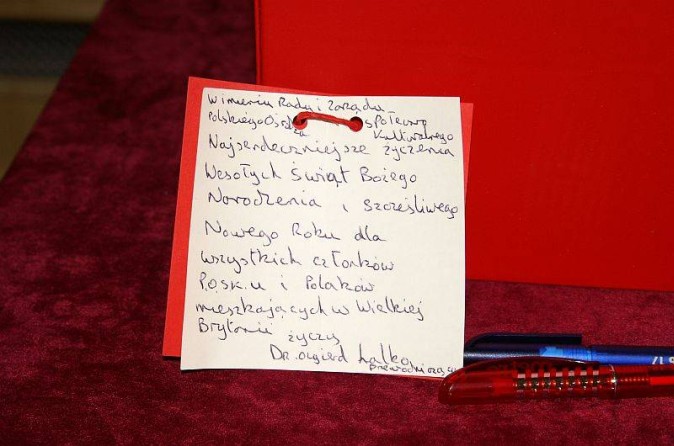 W imieniu Rady i Zarządu
Polskiego Ośrodka Społeczno
Kulturalnego
Najserdeczniejsze życzenia
Wesołych Świąt Bożego
Narodzenia i szczęśliwego
Nowego Roku dla
wszystkich członków
P.O.S.K.u i Polaków
mieszkających w Wielkiej
Brytanii życzy
Dr. Olgierd Lalko
17